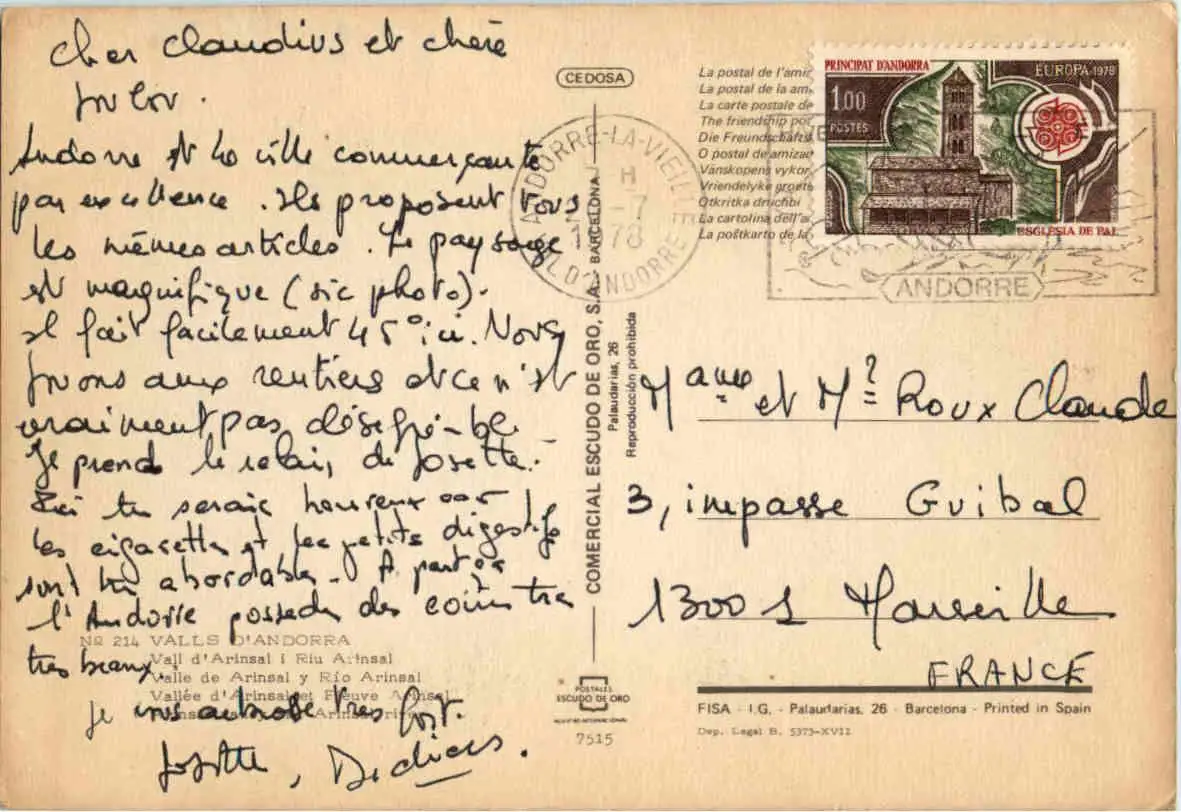 Cher Claudius et chère
Andorre est la ville commerçante
par excellence. Ils proposent tous
les mêmes articles. Le paysage
est magnifique (sic photo).
Il fait facilement 45° ici. Nous
jouons aux rentiers et ce n'est
vraiment pas désagréable
Je prend le relai, de Josette.
Ici tu serais heureux car
les cigarettes et les petits digestifs
sont très abordables. A part ça
l'Andorre possede des coins très
très beaux.
Je vous embrasse très fort.
Josette, Didier.
Nº 214 VALLS D'ANDORRA
Vall d'Arinsal i Riu Arinsal
Valle de Arinsal y Río Arinsal
Vallée d'Arinsal et Fleuve Arinsal
CEDOSA
COMERCIAL ESCUDO DE ORO, S.A. BARCELONA
Palaudarias, 26
Reproducción prohibida
POSTALES
ESCUDO DE ORO
7515
La postal de l'amis
La postal de la am
La carte postale de
The friendship pos
Die Freundschafts
O postal de amizad
Vänskapens vykor
Vriendelyke groete
Otkritka druchbi
La cartolina dell'a
La poŝtkarto de la
PRINCIPAT D'ANDORRA
EUROPA 1978
1.00
POSTES
ESGLESIA DE PAL
ANDORRE-LA-VIEILLE
H
-7
1978
VAL D'ANDORRE
ANDORRE
Mame et Mr Roux Claude
3, impasse Guibal
13001 Marseille
FRANCE
FISA - I.G. - Palaudarias, 26 - Barcelona - Printed in Spain
Dep. Legal B. 5373-XVII